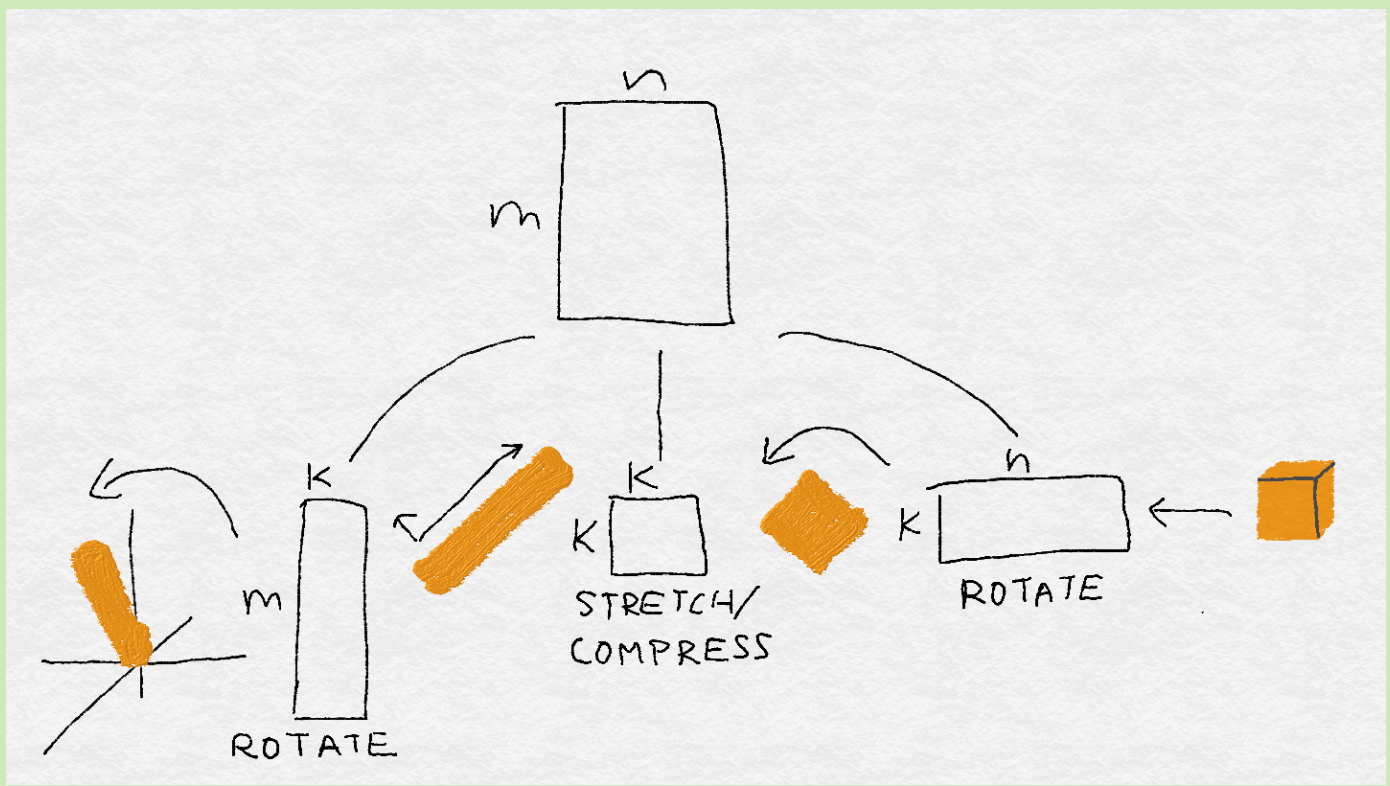 n
m
K
m
ROTATE
K
K
STRETCH/
COMPRESS
n
K
ROTATE